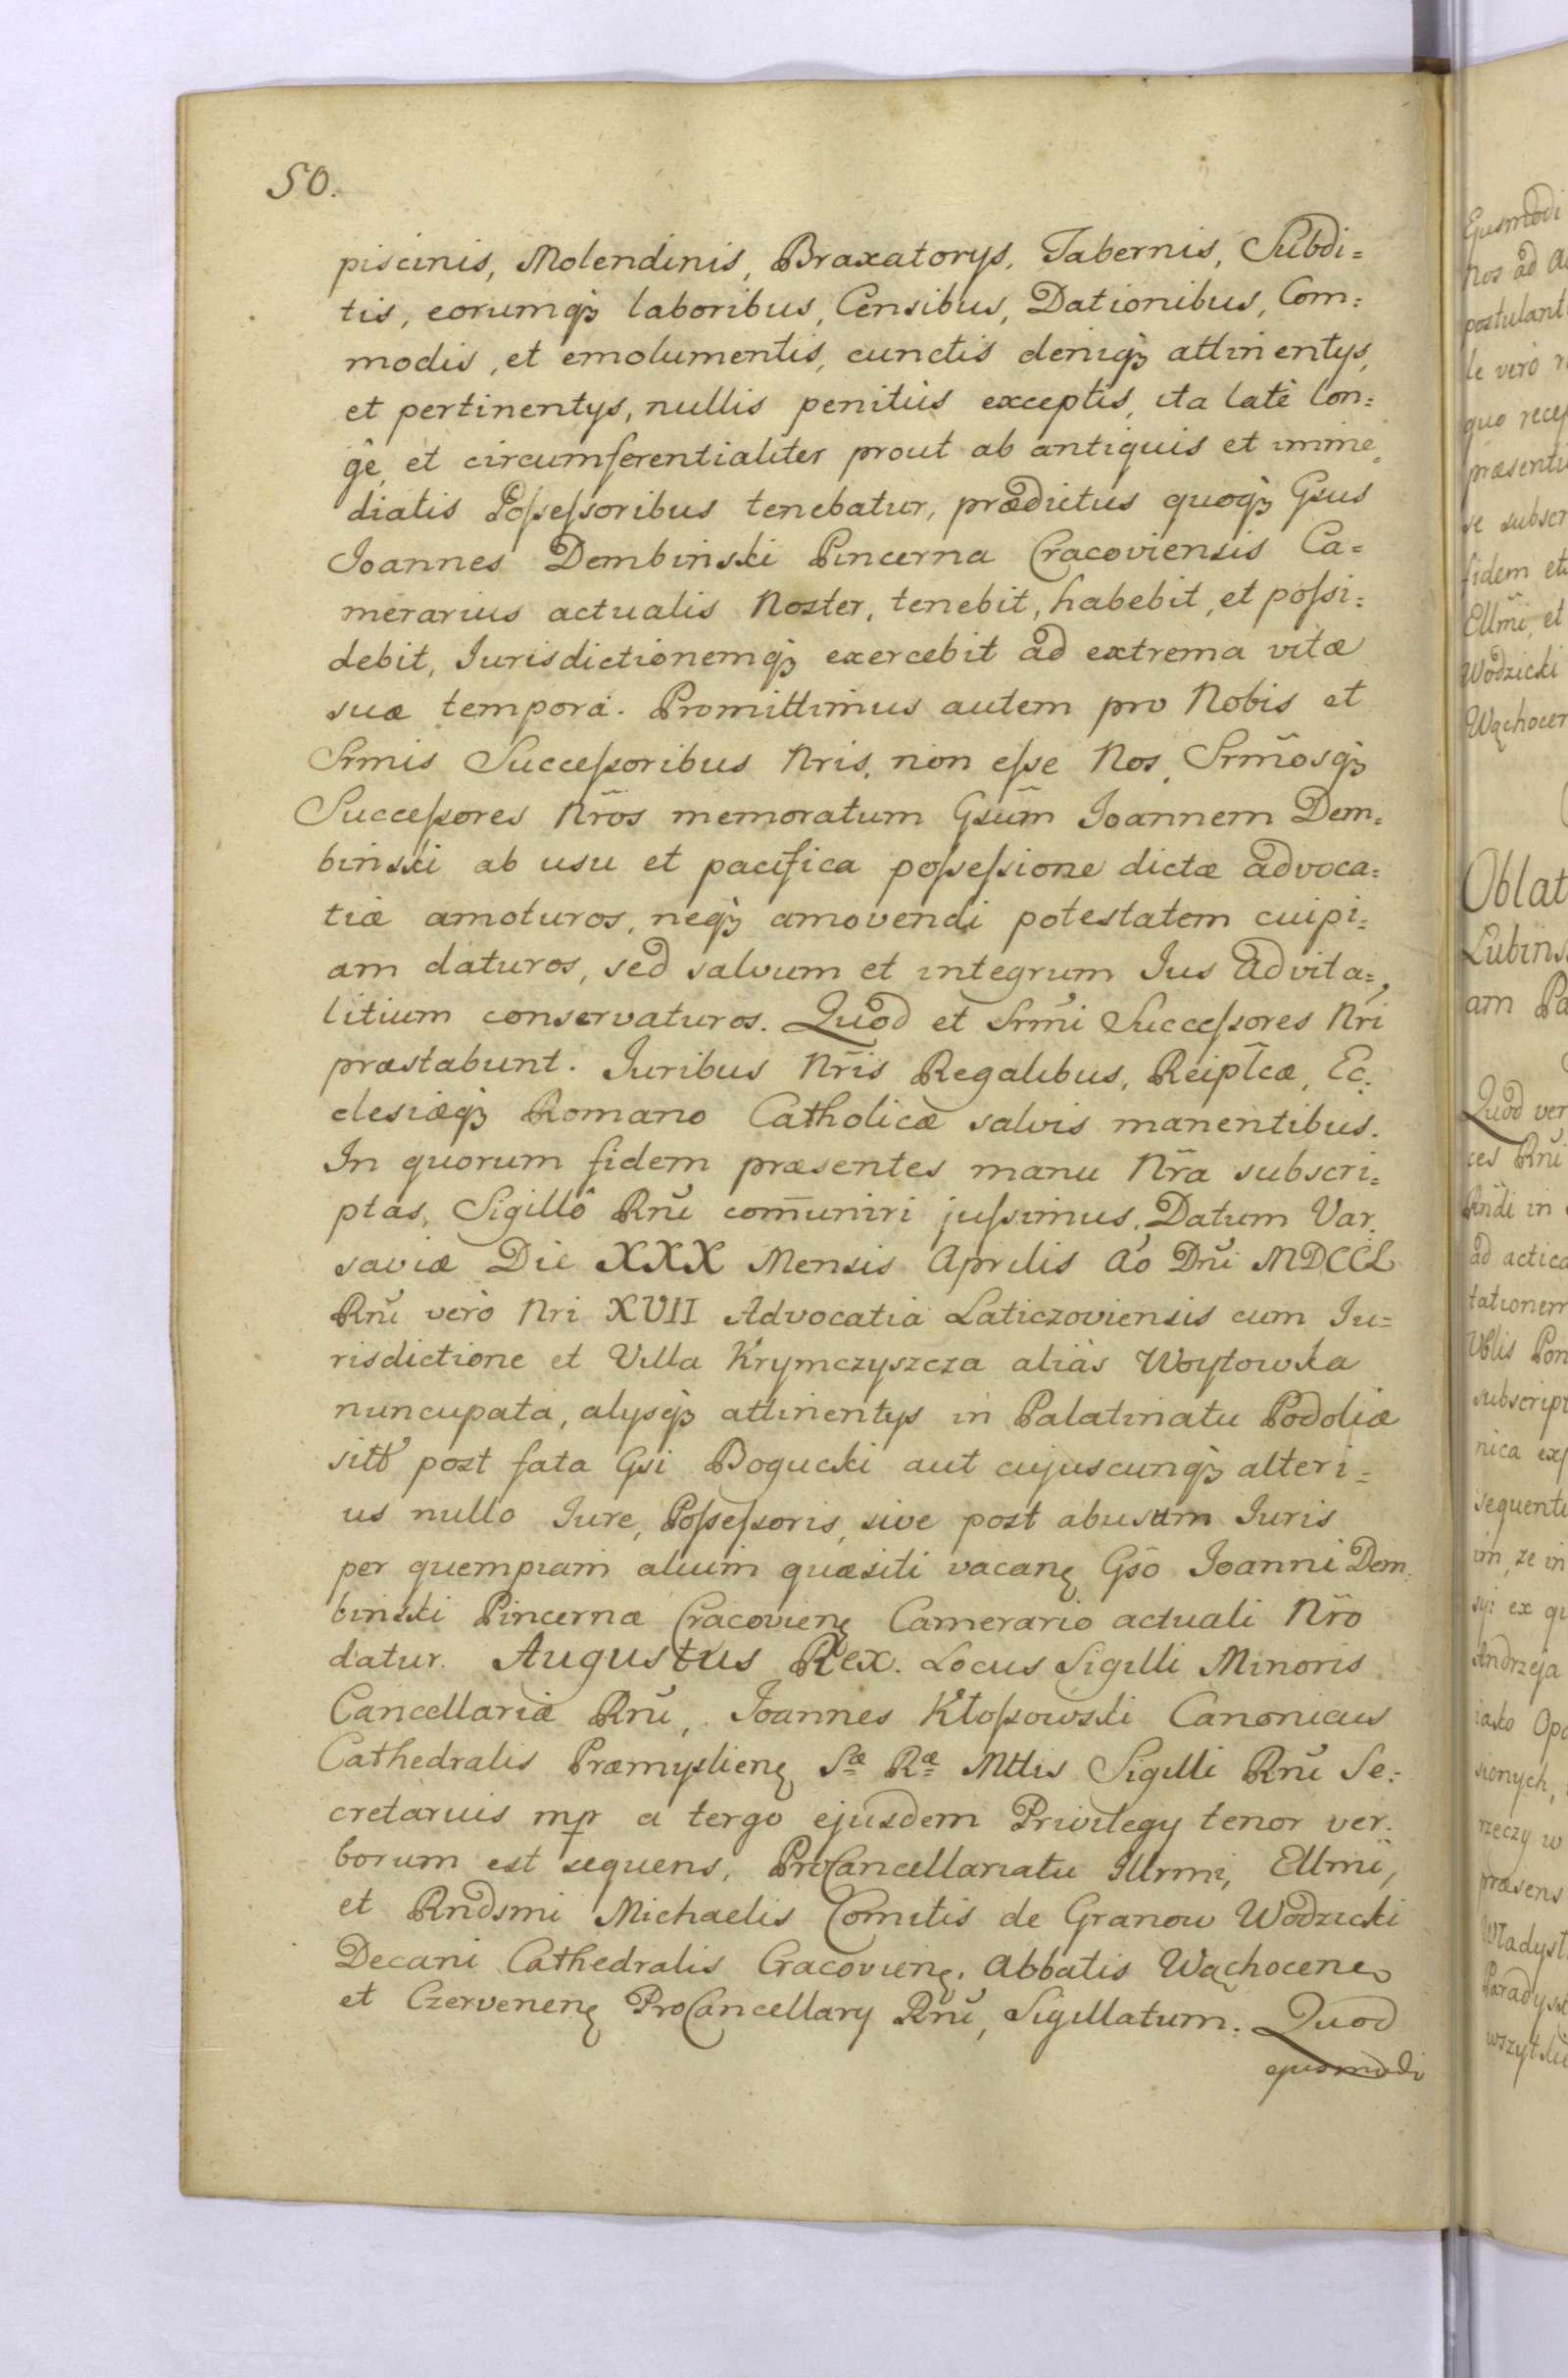 50.
piscinis, Molendinis, Braxatorys, Tabernis, Subdi=
tis, eorumqꝫ laboribus, Censibus, Dationibus, Com=
modis, et emolumentis, cunctis deniqꝫ attinentys,
et pertinentys, nullis penitùs exceptis, ita latè lon=
gè, et circumferentialiter prout ab antiquis et imme
diatis Poſseſsoribus tenebatur, prædictus quoqꝫ Gsus
Joannes Dembinski Pincerna Cracoviensis Ca=
merarius actualis Noster, tenebit, habebit, et poſsi=
debit, Jurisdictionemqꝫ exercebit ad extrema vitæ
suæ tempora. Promittimus autem pro Nobis et
Srmis Succeſsoribus Nris, non eſse Nos, Srm̃osqꝫ
Succeſsores Nr̃os memoratum Gsum̃ Joannem Dem=
binski ab usu et pacifica poſseſsione dictæ advoca=
tiæ amoturos, neqꝫ amovendi potestatem cuipi=
am daturos, sed salvum et integrum Jus advita=
litium conservaturos. Quod et Srmi Succeſsores Nri
præstabunt. Juribus Nr̃is Regalibus, Reipl̃cæ, Ec=
clesiæqꝫ Romano Catholicæ salvis manentibus.
In quorum fidem præsentes manu Nr̃a subscri=
ptas, Sigillô Rñi com̄uniri juſsimus. Datum Var
saviæ Die XXX Mensis Aprilis Aõ Dñi MDCCL
Rñi verò Nri XVII Advocatia Laticzoviensis cum Ju=
risdictione et Villa Krymczyszcza aliàs Woytowska
nuncupata, alysqꝫ attinentys in Palatinatu Podoliæ
sitt post fata Gsi Bogucki aut cujuscunqꝫ alteri=
us nullo Jure, Poſseſsoris, sive post abusum Juris
per quempiam alium quæsiti vacanꝭ Gsõ Joanni Dem
binski Pincernæ Cracovienꝭ Camerario actuali Nr̃o
datur. Augustus Rex. Locus Sigilli Minoris
Cancellariæ Rñi, Joannes Kłoſsowski Canonicus
Cathedralis Præmyslienꝭ Sæ Ræ Mttis Sigilli Rñi Se=
cretarius mpr a tergo ejusdem Privilegy tenor ver=
borum est sequens, ProCancellariatu Illrmi, Ellmi,
et Rndsmi Michaelis Comitis de Granow Wodzicki
Decani Cathedralis Cracovienꝭ, Abbatis Wąchocenꝭ
et Czervenenꝭ ProCancellary Rñi, Sigillatum. Quod
ejusmodi
Ejusmodi
Nos ad
postulant
le verò
quo
se
fidem et
Ellmi, et
Wodzicki
Oblat
am
Quod ver
Rñi
in
ad
Andrzeja
iako
sionych,
rzeczy w
præsens